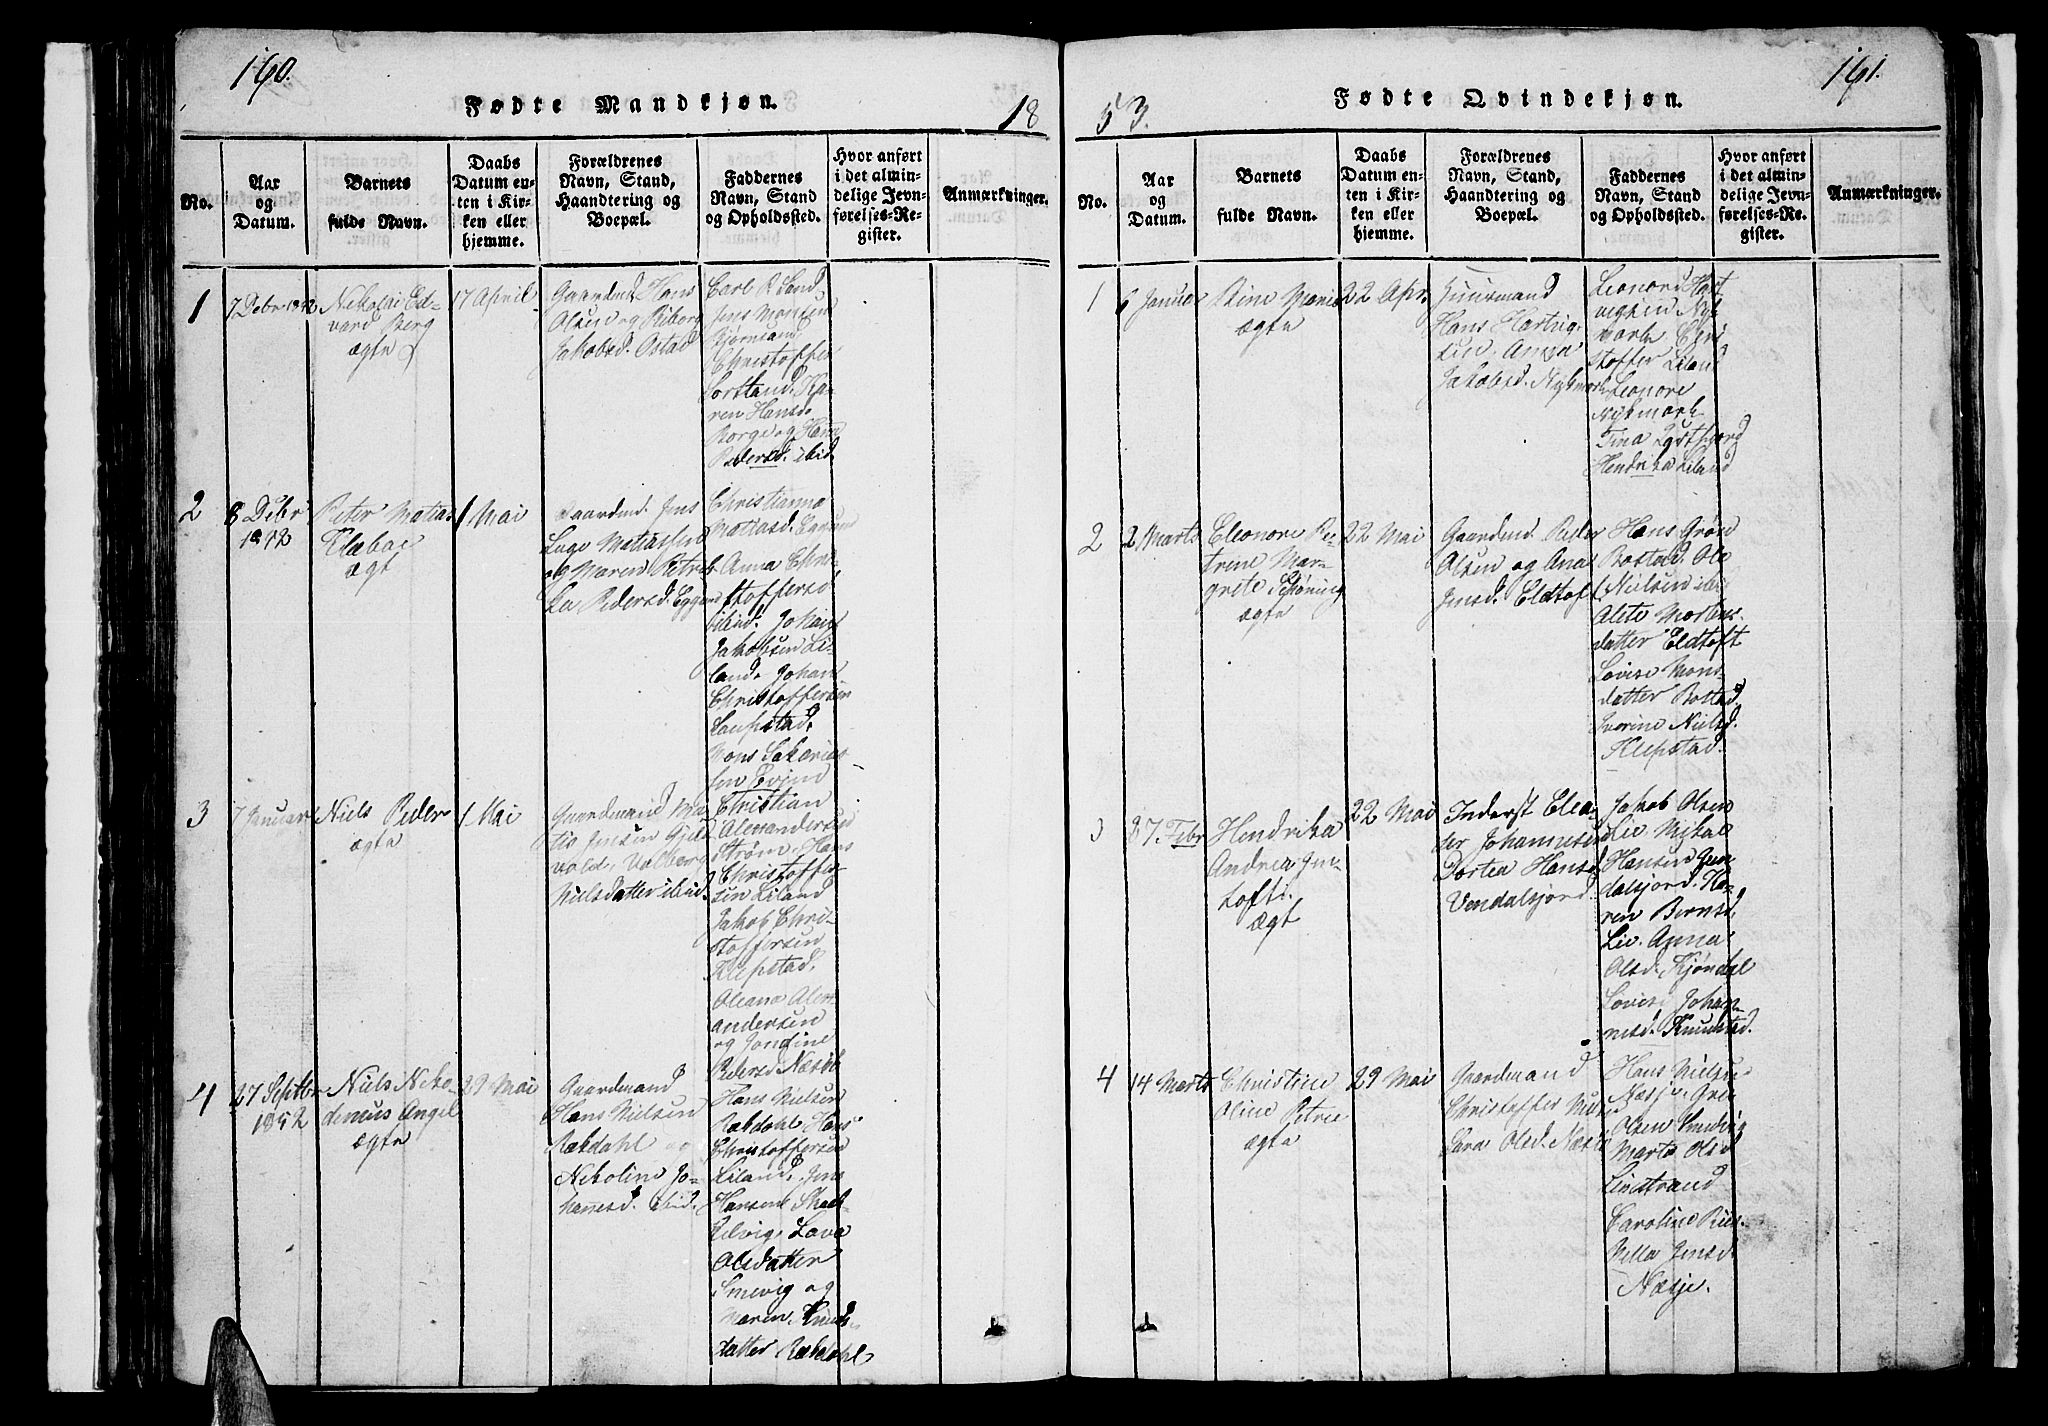 160.
Fødte Mandkjøn.
18
No.
Aar
og
Datum.
Barnets
fulde Navn.
Daabs
Datum en-
ten i Kir-
ken eller
hjemme.
Forældrenes
Navn, Stand,
Haandtering og
Boepæl.
Faddernes
Navn, Stand
og Opholdssted.
Hvor anført
i det almin-
delige Jevn-
førelses-Re-
gister.
Anmærkninger.
1
7 Debr
Nikolai Ed-
vard Berg
ægte
17 April
Gaardmd. Hans
Olsen og
Jakobsd. Ostad
Carl R Sand
Jens Monsen
Bjørnsand
Christoffer
Sortland. Ka-
ren Hansd.
Borge og
Pedersd. ibid.
2
8 Debr
Peter Matias
Klæboe
ægt
1 Mai
Gaardmd. Jens
Lage Matiassen
og Maren Petri-
ka Pedersd. Eggum
Christianna
Matiasd. Eggum
Anna Chri-
stoffersd
ibid. Johan
Jakobsen Li-
land. Johan
Christoffersen
Laupstad.
Mons Sakarias-
sen Evjen
3
7 Januar
Niels Peder
ægte
1 Mai
Gaardmand Ma-
tis Jensen
vold, Valborg
Nielsdatter ibid.
Christian
Alexandersen
Strøm. Hans
Christoffer-
sen Liland
Jakob Chri-
stoffersen
Klepstad.
Oleana Alex-
andersen
og Jondine
Pedersd Næsje
4
27 Septbr
1852
Niels Niko-
demus Angel
ægte
29 Mai
Gaardmand
Hans Nielsen
Rækdahl og
Nikoline Jo-
hannesd. ibid.
Hans Nielsen
Rækdahl Hans
Christoffersen
Liland. Jens
Hansen Skæl-
felvig. Lava
Olsdatter
Smevig og
Maren Knuds-
datter Rækdahl
161.
Fødte Qvindekjøn.
53.
No.
Aar
og
Datum.
Barnets
fulde Navn.
Daabs
Datum en-
ten i Kir-
ken eller
hjemme.
Forældrenes
Navn, Stand,
Haandtering og
Boepæl.
Faddernes
Navn, Stand
og Opholdssted.
Hvor anført
i det almin-
delige Jevn-
førelses-Re-
gister.
Anmærkninger.
1
6 Januar
Stine Marie
ægte
22 Apr.
Huusmand
Hans Hartvig-
sen, Anna
Jakobsd. Nykmark
Leonard Hart
vigsen Nyk-
mark Chri-
stoffer Liland
Leonore
Nykmark
Tina
Hendrika Liland
2
2 Marts
Eleonore Pe-
trine Mar-
grete Schøning
ægte
22 Mai
Gaardmd. Peder
Olsen og Ana
Jensd. Eldtoft
Hans Grøn
Bostad. Ole
Nielsen ibd.
Alete Mortens-
datter Eldtoft
Lovise Mons
datter Bostad
Iverine Nielsd.
Klepstad.
3
7. Febr
Hendrika
Andrea Jen-
tofte.
ægt
22 Mai
Inderst Elea-
ser Johannesen
Dortea Hansd
Vendalsjord
Jakob Olsen
Lie. Mikal
Hansen Ven-
dalsjord. Ka-
ren Bernsd.
Lie. Anna
Olsd. Kjøndal
Lovise Johan-
nesd. Knudstad.
4
14 Marts
Christine
Oline Petrea
ægte
29 Mai
Gaardmand
Christoffer Niels.
Lava Olsd. Næsje
Hans Nielsen
Næsje. Gre
Olsen Smedvig
Marta Olsd
Linstrand
Caroline Ries.
Pella Jensd
Næsje.